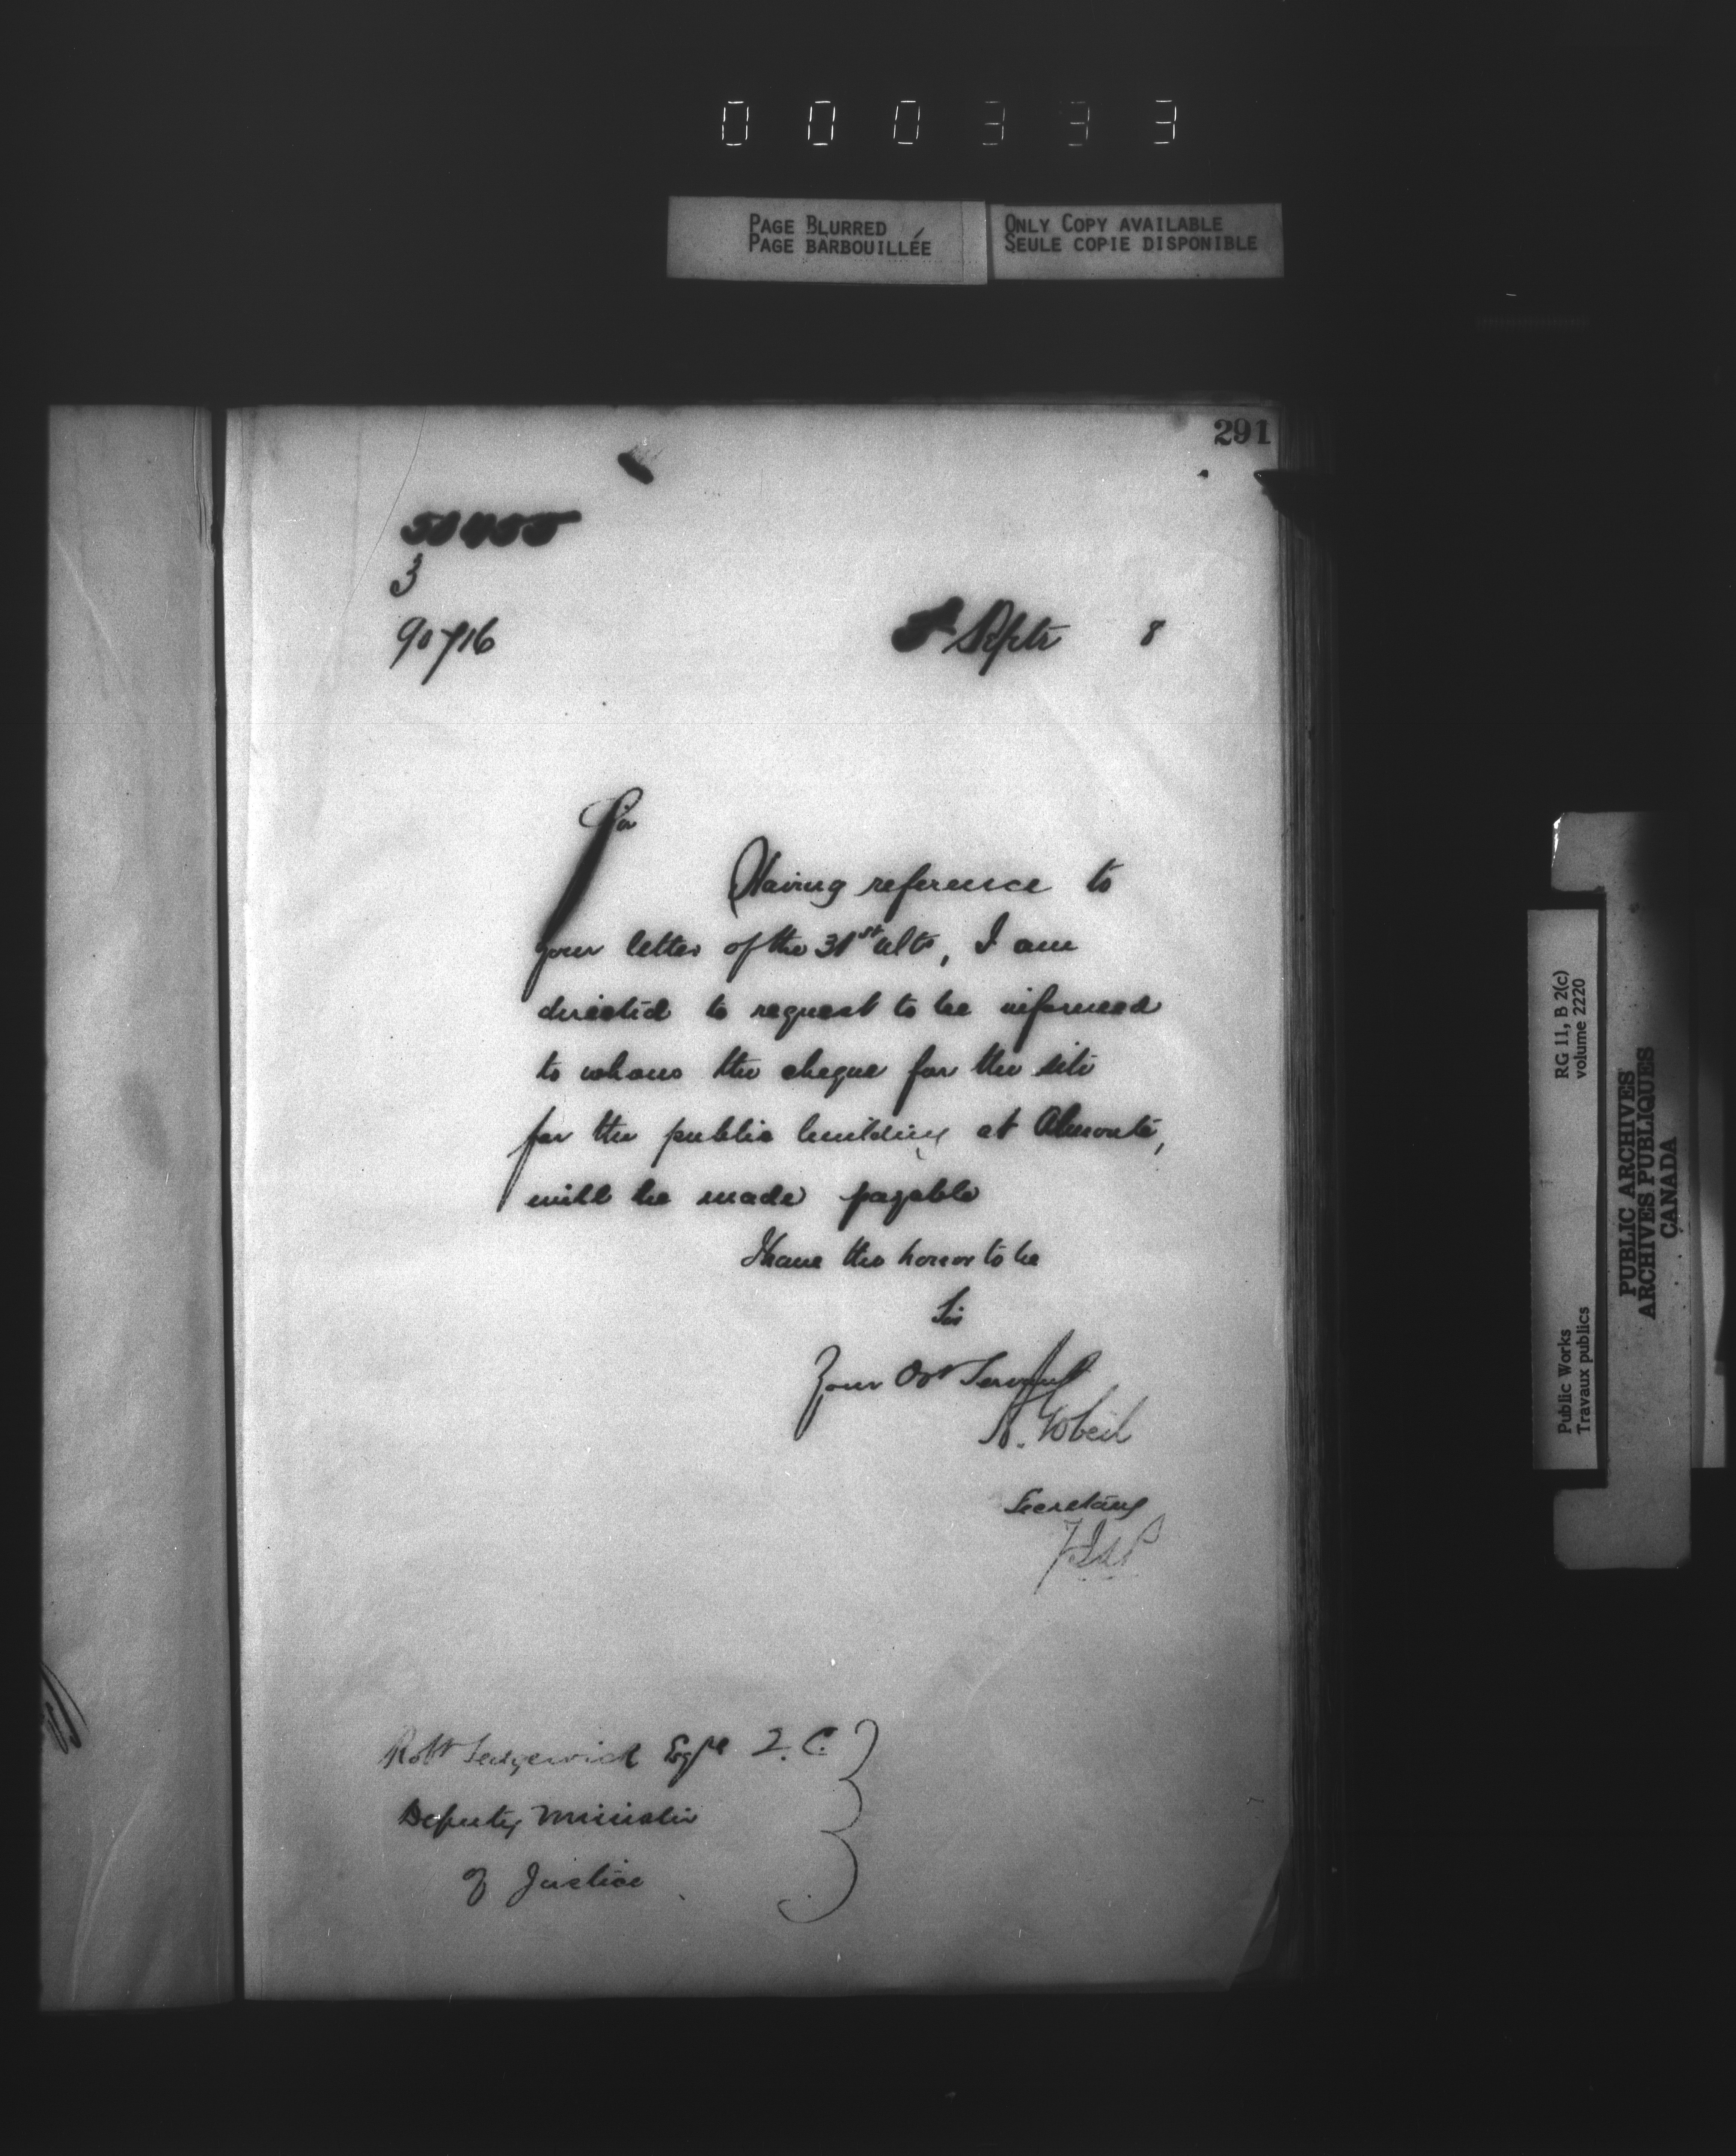 000333
PAGE BLURRED
PAGE BARBOUILLÉE
ONLY COPY AVAILABLE
SEULE COPIE DISPONIBLE
291
3
90716
Septr 8
Sir
Having reference to
your letter of the 31st ulto, I am
directed to request to be informed
to whom the cheque for the site
for the public building at Almonte,
will be made payable
I have the honor to be
Sir
Your Obt Servant
A. Gobeil
Secretary
Robt Sedgewick Esqre Q.C.
Deputy Minister
of Justice
RG 11, B 2(c)
volume 2220
Public Works
Travaux publics
PUBLIC ARCHIVES
ARCHIVES PUBLIQUES
CANADA